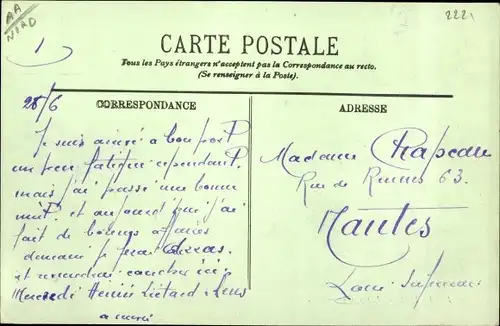 AA
NORD
2221
1
CARTE POSTALE
Tous les Pays étrangers n'acceptent pas la Correspondance au recto.
(Se renseigner à la Poste).
28/6
CORRESPONDANCE
Je suis arrivé a bon port
un peu fatigué cependant
mais j'ai passé une bonne
nuit et
fait de bonnes affaires
demain je ferai Arras
et reviendrai coucher ici
Mercredi Henin Lietard Lens
a
ADRESSE
Madame Chapeau
Rue de Rennes 63.
Nantes
Loire Inférieure